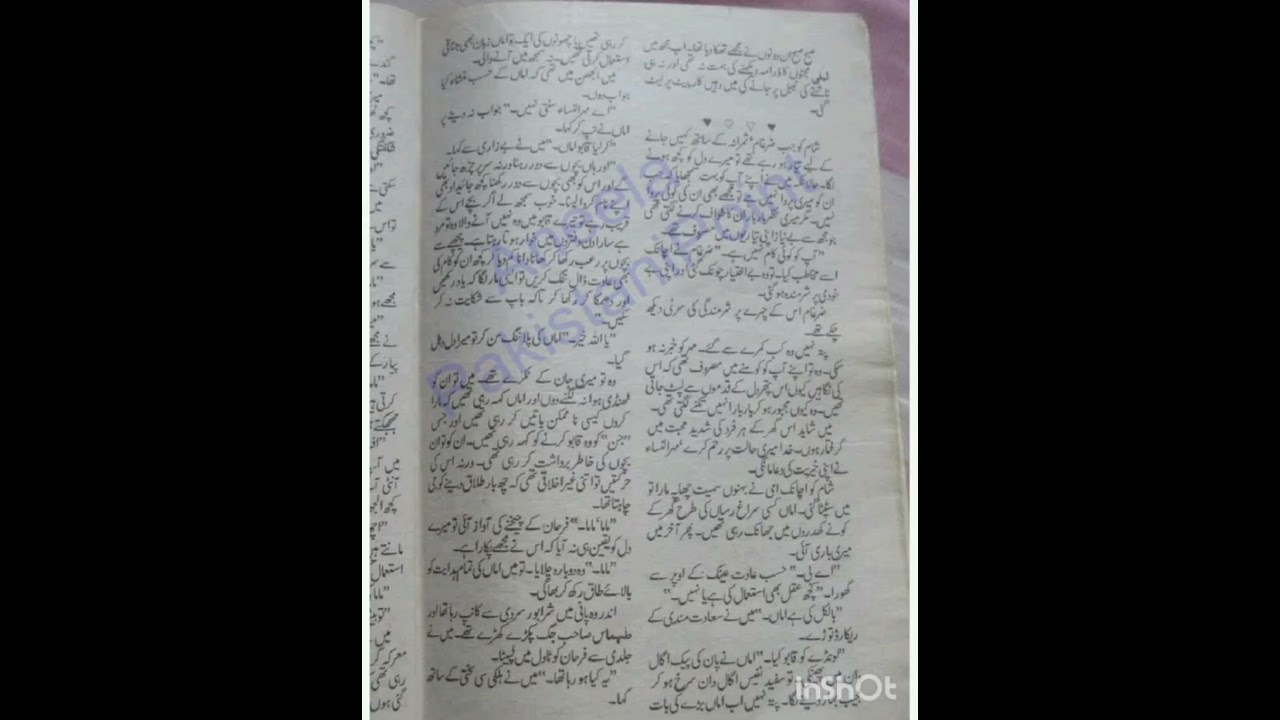 صبح صبح ان دونوں نے مجھے تھکا دیا تھا۔ اب مجھ میں
فیملی مجنوں کا ڈرامہ دیکھنے کی ہمت نہ تھی اور نہ ہی
ناشتے کی ٹیبل پر جانے کی میں وہیں کارپیٹ پر لیٹ
گئی۔
شام کو جب ضرغام، ثمرانہ کے ساتھ کہیں جانے
کے لیے تیار ہو رہے تھے تو میرے دل کو کچھ ہونے
لگا۔ حالانکہ میں نے اپنے آپ کو بہت سمجھایا کہ جب
ان کو میری پروا نہیں ہے تو مجھے بھی ان کی کوئی پروا
نہیں۔ مگر میری نظر بار بار ان کا طواف کرنے لگتی تھی
جو مجھ سے بے نیاز اپنی تیاریوں میں مصروف تھے۔
"آپ کو کوئی کام نہیں ہے۔" ضرغام نے اچانک
اسے مخاطب کیا۔ تو وہ بے اختیار چونک گئی اور اپنی بے
خودی پر شرمندہ ہو گئی۔
ضرغام اس کے چہرے پر شرمندگی کی سرخی دیکھ
چکے تھے۔
پتہ نہیں وہ کب کمرے سے گئے۔ مہر کو خبر نہ ہو
سکی۔ وہ تو اپنے آپ کو کوسنے میں مصروف تھی کہ اس
کی نگاہیں کیوں اس پتھر دل کے قدموں سے لپٹ جاتی
تھیں۔ وہ کیوں مجبور ہو کر بار بار انہیں تکنے لگتی تھی۔
میں شاید اس گھر کے ہر فرد کی شدید محبت میں
گرفتار ہوں۔ خدا میری حالت پر رحم کرے، مہرالنساء
نے اپنی خیریت کی دعا مانگی۔
شام کو اچانک امی نے بہنوں سمیت چھاپہ مارا تو
میں سٹپٹا گئی۔ اماں کسی سراغ رساں کی طرح گھر کے
کونے کھدروں میں جھانک رہی تھیں۔ پھر آخر میں
میری باری آئی۔
"اے بی۔" حسب عادت عینک کے اوپر سے
گھورا۔ "کچھ عقل بھی استعمال کی ہے یا نہیں۔"
"بالکل کی ہے اماں۔" میں نے سعادت مندی کے
ریکارڈ توڑے۔
"لونڈے کو قابو کیا۔" اماں نے پان کی پیک اگال
دان میں پھینکی تو سفید نفیس اگال دان سرخ ہو کر
لگا۔ پتہ نہیں اب اماں بڑے کی بات
کر رہی تھیں یا چھوٹوں کی ایک تو اماں زبان بھی
استعمال کرتی تھیں۔ نہ سمجھ میں آنے والی۔
میں الجھن میں تھی کہ اماں کے حسب منشاء کیا
جواب دوں۔
"اے مہرالنساء سنتی نہیں۔" جواب نہ دینے پر
اماں نے تپ کر کہا۔
"کر لیا قابو اماں۔" میں نے بے زاری سے کہا۔
"اور ہاں بچوں سے دور رہنا ورنہ سر پر چڑھ جائیں
گے اور اس کو بھی بچوں سے دور رکھنا کچھ جائیداد بھی
اپنے نام کروا لینا۔ خوب سمجھ لے اگر بچے اس کے
قریب رہے تو تیرے قابو میں وہ نہیں آنے والا وہ تو مرد
ہے سارا دن دفتروں میں خوار ہوتا رہتا ہے۔ پیچھے سے
بچوں پر رعب رکھا کر کھانا وانا کم دیا کر کچھ ان کو کام کی
بھی عادت ڈال تنگ کریں تو ایسی مار لگا کہ یاد رکھیں
اور دھمکا کر رکھا کر تاکہ باپ سے شکایت نہ کر
سکیں۔"
"یا اللہ خیر۔" اماں کی پلاننگ سن کر تو میرا دل دہل
گیا۔
وہ تو میری جان کے ٹکڑے تھے۔ میں تو ان کو
ٹھنڈی ہوا نہ لگنے دوں اور اماں کہہ رہی تھیں کہ مارا
کروں کیسی ناممکن باتیں کر رہی تھیں اور جس
"جن" کو وہ قابو کرنے کو کہہ رہی تھیں۔ ان کو تو ان
بچوں کی خاطر برداشت کر رہی تھی۔ ورنہ اس کی
حرکتیں تو اتنی غیر اخلاقی تھی کہ چھ بار طلاق دینے کو جی
چاہتا تھا۔
"ماما، ماما۔" فرحان کے چیخنے کی آواز آئی تو میرے
دل کو یقین ہی نہ آیا کہ اس نے مجھے پکارا ہے۔
"ماما۔" وہ دوبارہ چلایا۔ تو میں اماں کی تمام ہدایت کو
بالائے طاق رکھ کر بھاگی۔
اندر وہ پانی میں شرابور سردی سے کانپ رہا تھا اور
طہماس صاحب جگ پکڑے کھڑے تھے۔ میں نے
جلدی سے فرحان کو ٹاول میں لپیٹا۔
"یہ کیا ہو رہا تھا۔" میں نے ہلکی سی سختی کے ساتھ
کہا۔
Aneela
Pakistani Point
InShOt